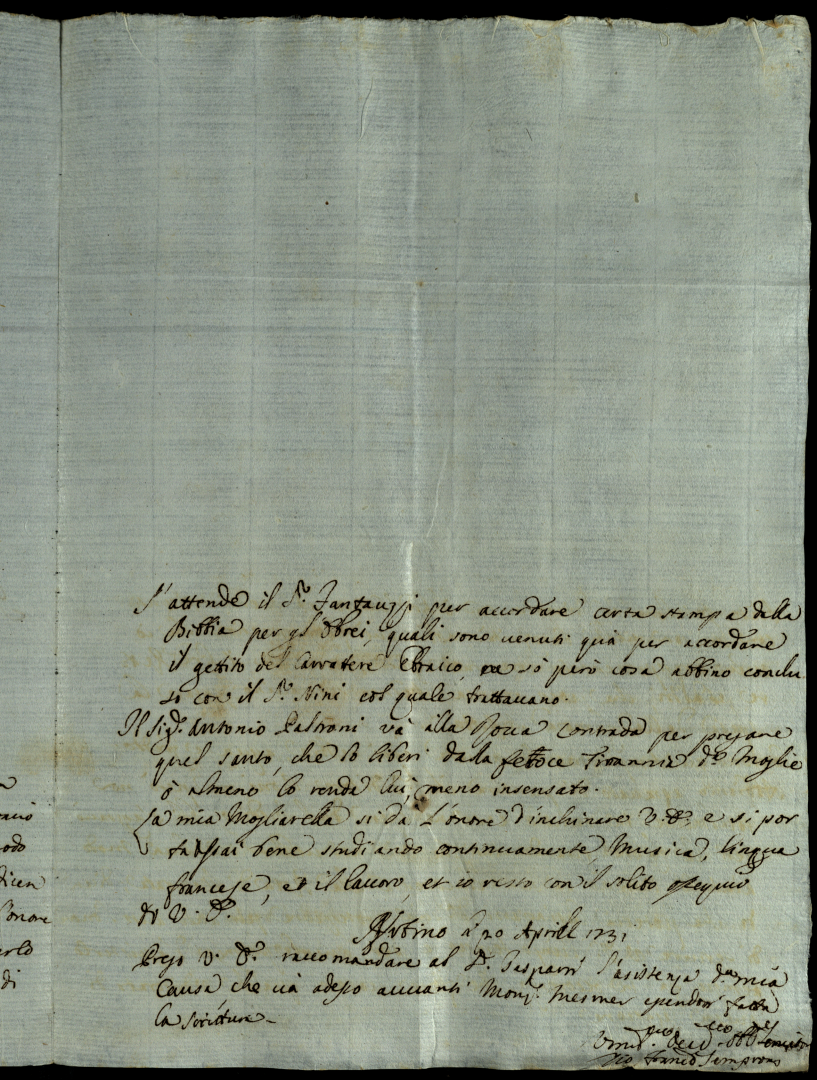 S'attende il Sr. Fantauzzi per accordare certa stampa dalla
Bibbia per gl'Ebrei, quali sono venuti quà per accordare
il gettito del Carratere Ebraico, sò però cosa abbino conclu
so con il Sr. Nini col quale trattavano.
Il Sigr. Antonio Palroni và alla Rocca Contrada per pregare
quel santo, che lo liberi dalla feroce Tirannia da. Moglie
ò almeno lo renda lui meno insensato.
La mia Mogliarella si dà l'onore d'inchinare V. Sa. e si por
ta assai bene studiando continuamente, Musica, lingua
francese, et il lavoro, et io resto con il solito ossequio
di V. Sa.
Urbino 20 Aprill 1731
Prego V. Sa. raccomandare al Sr. Gasparri l'asistenza da. mia
Causa, che và adesso avvanti Monsr. Mesmer essendosi fatta
la scrittura
Gio Franco Semproni
ravò
odo
dicen
l'onore
arlo
di